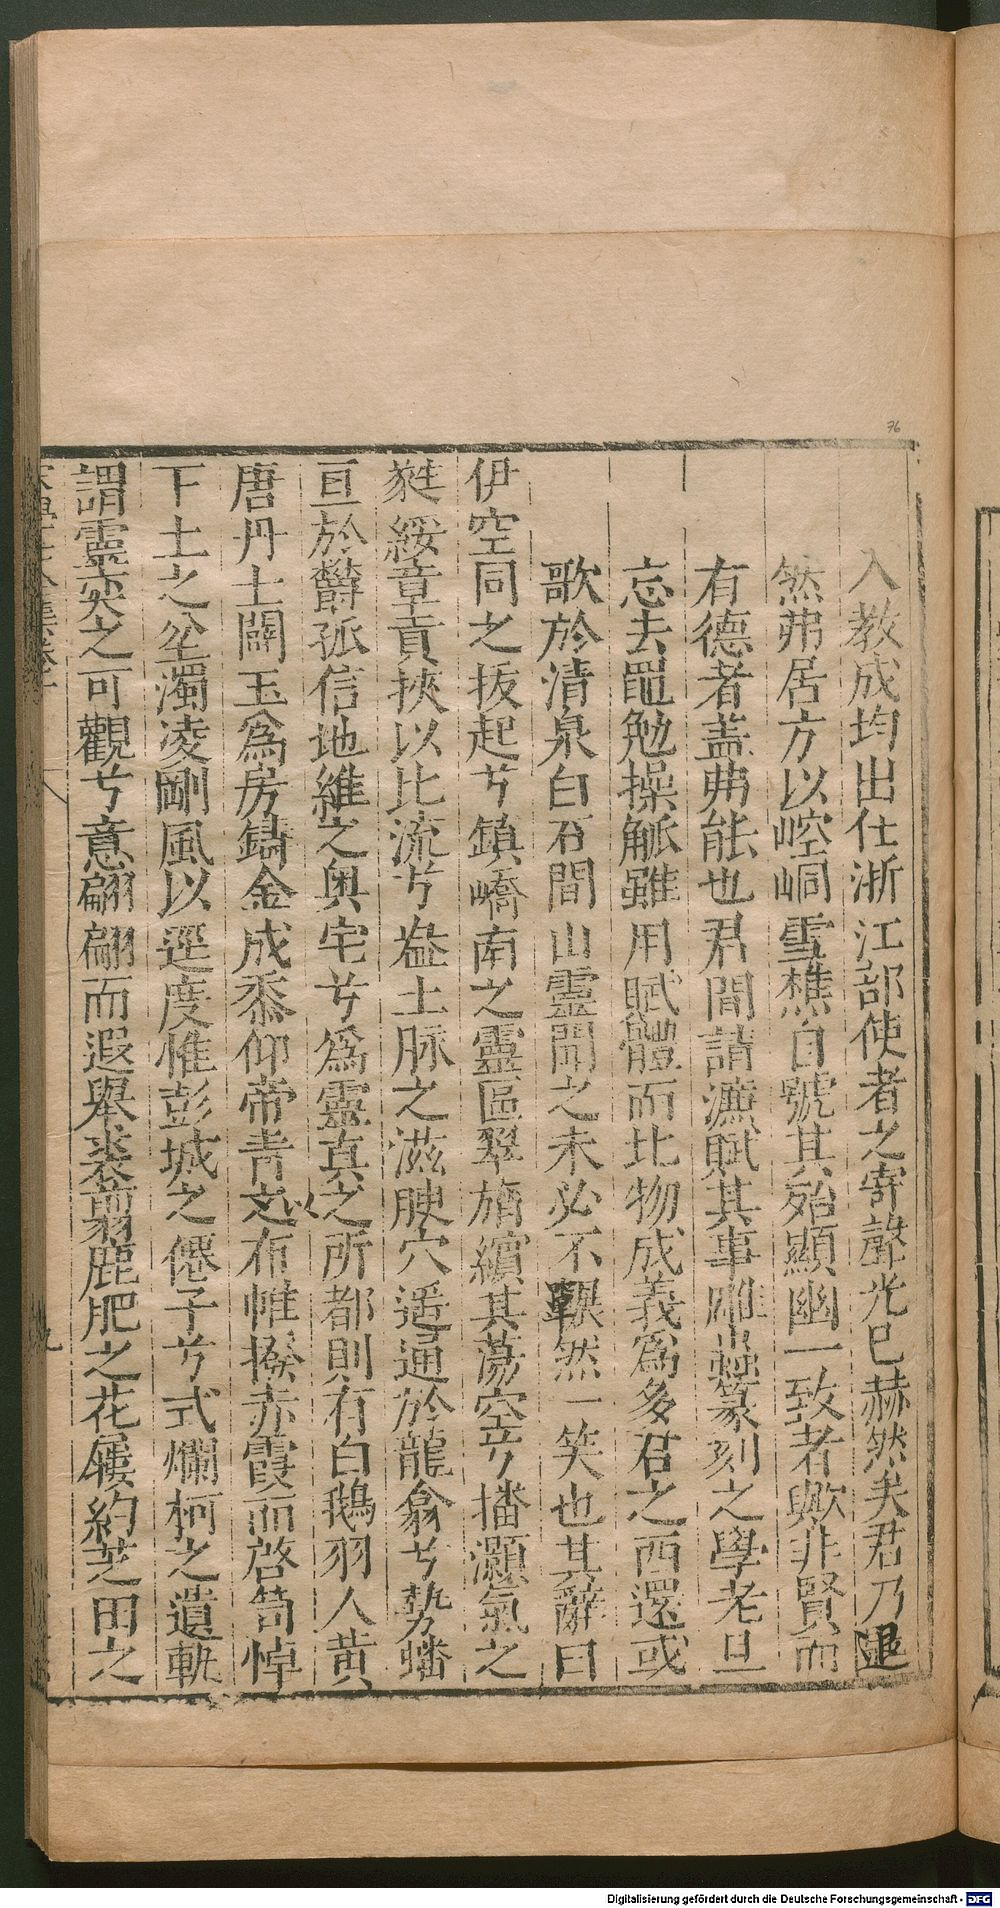 76
入教成均出仕浙江部使者之寄聲光已赫然矣君乃退
然弗居方以崆峒雪樵自號其殆顯幽一致者歟非賢而
有德者蓋弗能也君間請濂賦其事雕蟲篆刻之學老且
忘去黽勉操觚雖用賦體而比物成義爲多君之西還或
歌於清泉白石間山靈聞之未必不囅然一笑也其辭曰
伊空同之拔起兮鎮嶠南之靈區翠旓繽其蕩空兮播灝氣之
蕤綏章貢挾以比流兮盎土脉之滋腴穴遥通於龍龕兮勢蟠
亘於欝孤信地維之奥宅兮爲靈真之所都則有白鵝羽人黄
唐丹士闢玉爲房鑄金成黍仰帝青以布帷掇赤霞而啓笥悼
下土之坌濁凌剛風以遥度惟彭城之僊子兮式爛柯之遺軌
謂靈穾之可觀兮意翩翩而遐舉裘剪鹿肥之花屨約芝田之
九
Digitalisierung gefördert durch die Deutsche Forschungsgemeinschaft - DFG